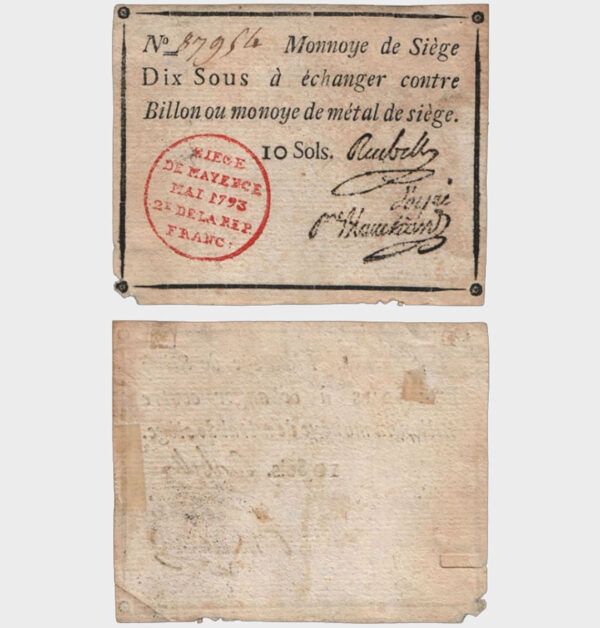 No 37954 Monnoye de Siège
Dix Sous à échanger contre
Billon ou monoye de métal de siège.
10 Sols. Reubell
SIEGE
DE MAYENCE
MAI 1793
2E DE LA REP.
FRANC.